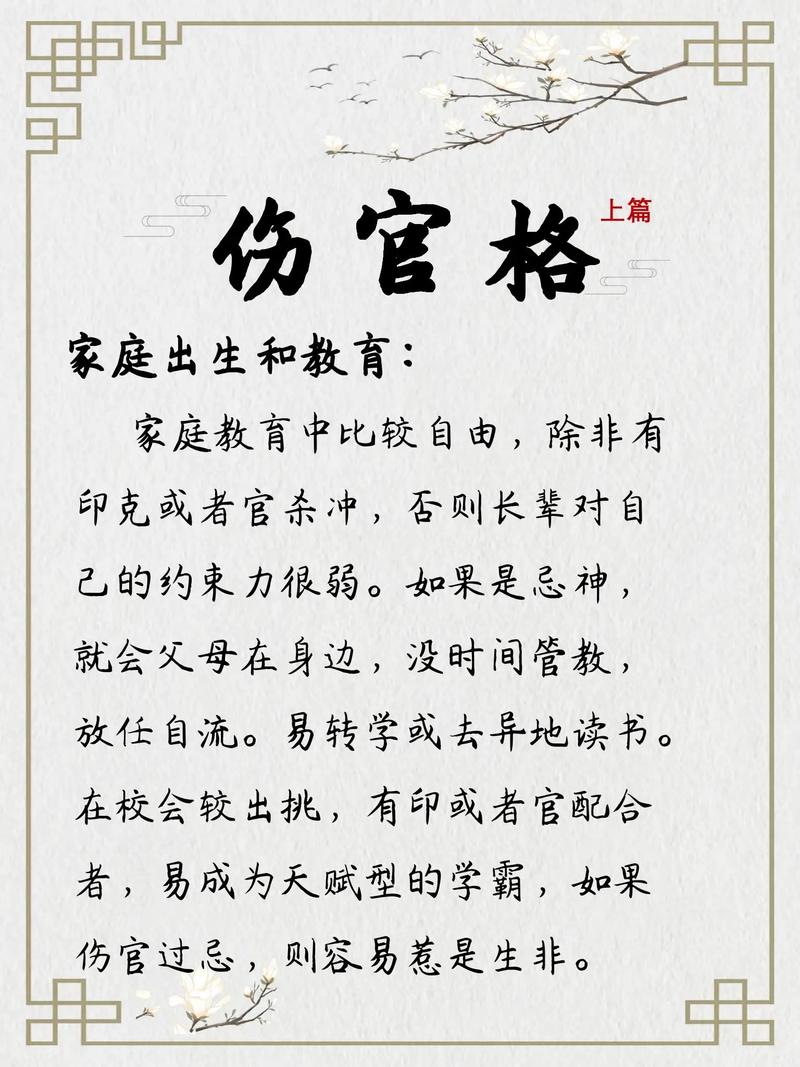 伤官格
上篇
家庭出生和教育：
家庭教育中比较自由，除非有
印克或者官杀冲，否则长辈对自
己的约束力很弱。如果是忌神，
就会父母在身边，没时间管教，
放任自流。易转学或去异地读书。
在校会较出挑，有印或者官配合
者，易成为天赋型的学霸，如果
伤官过忌，则容易惹是生非。